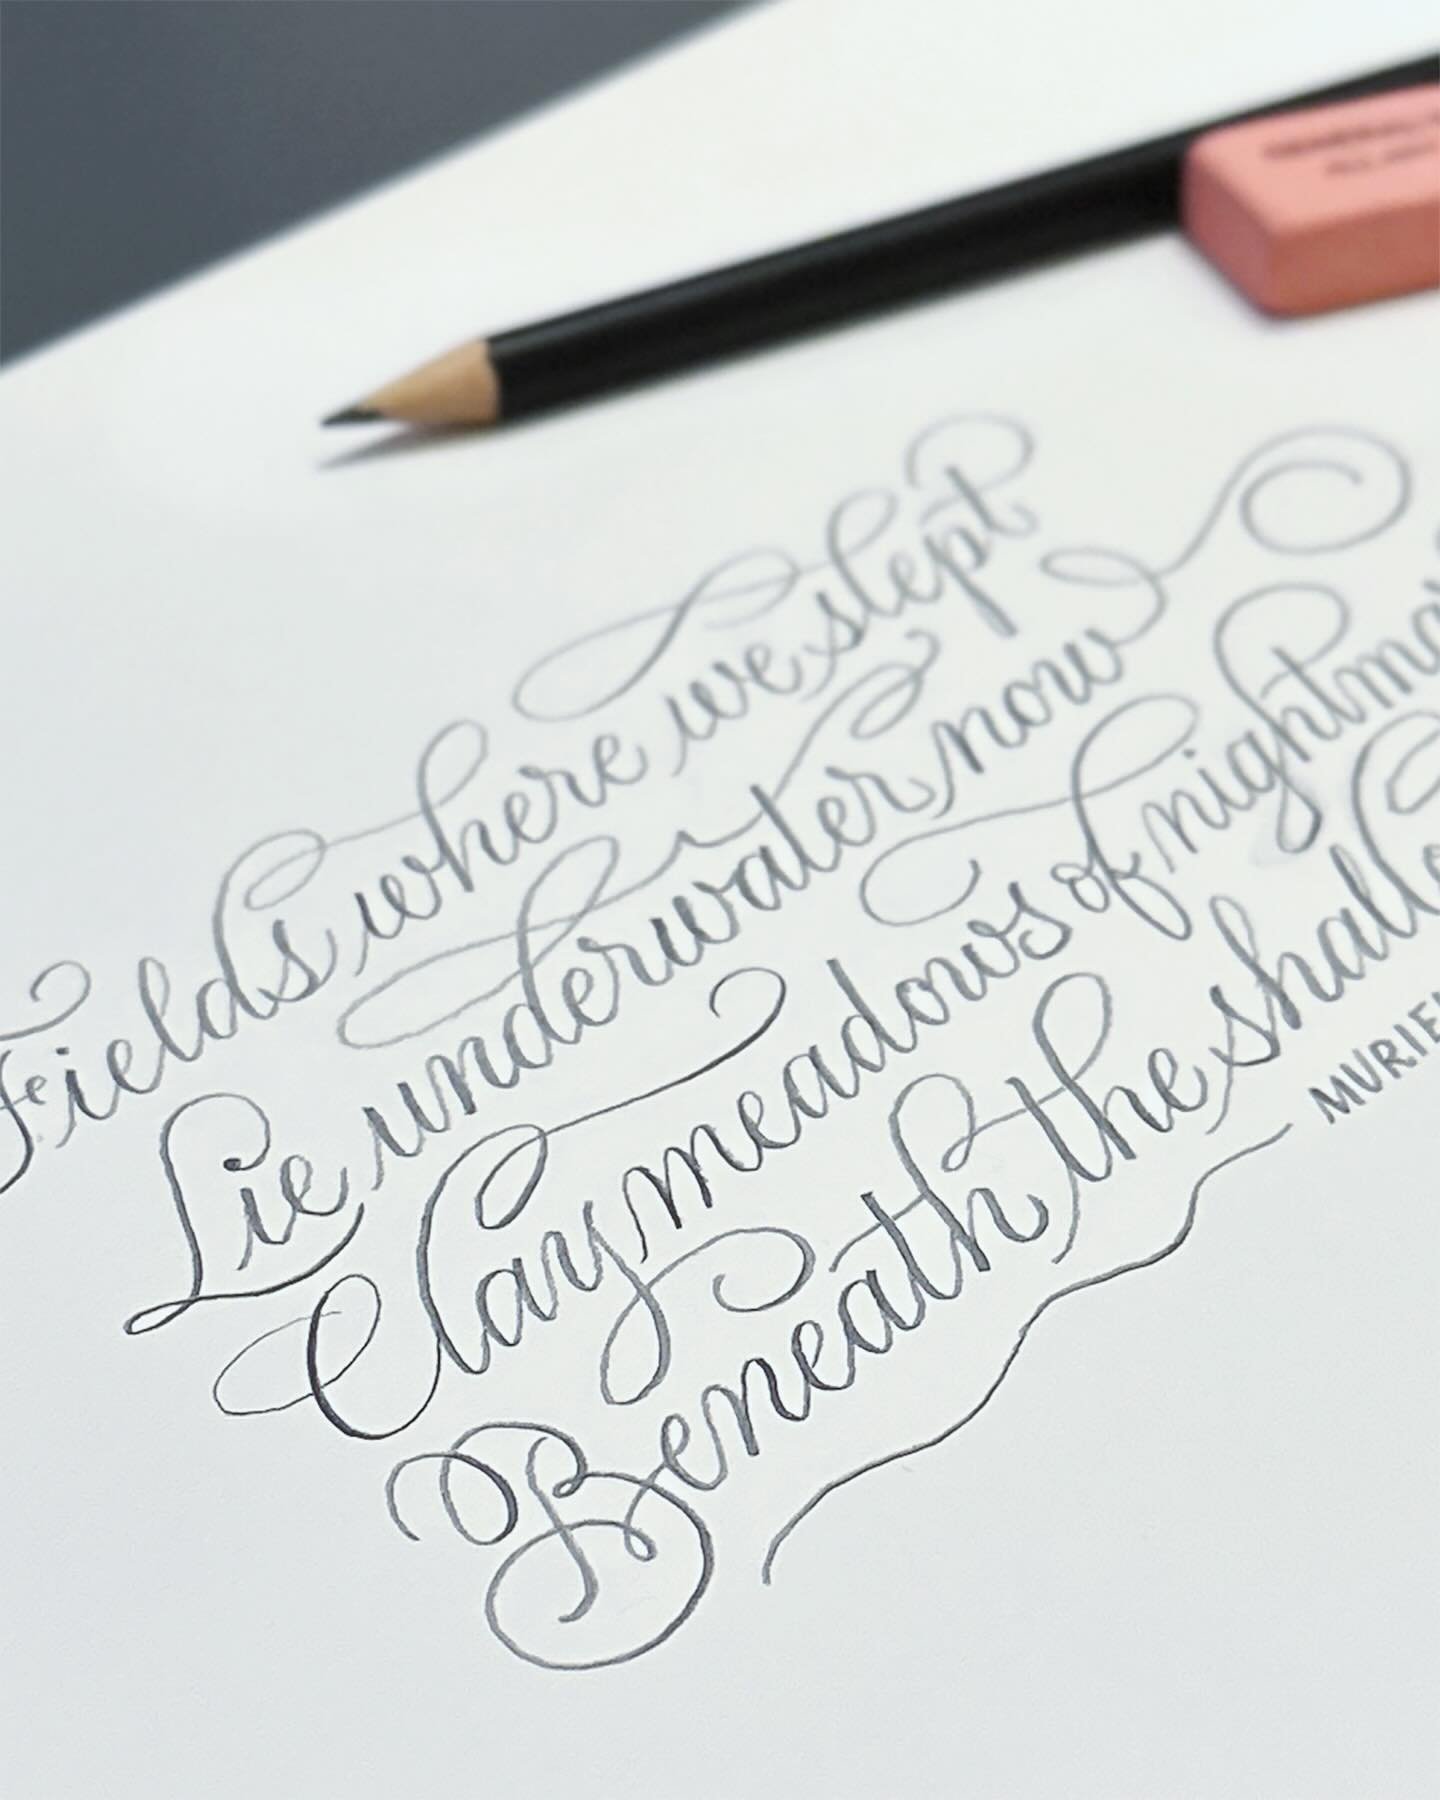 Fields where we slept
Lie underwater now
Clay meadows of nightmar
Beneath the shallo
MURIE